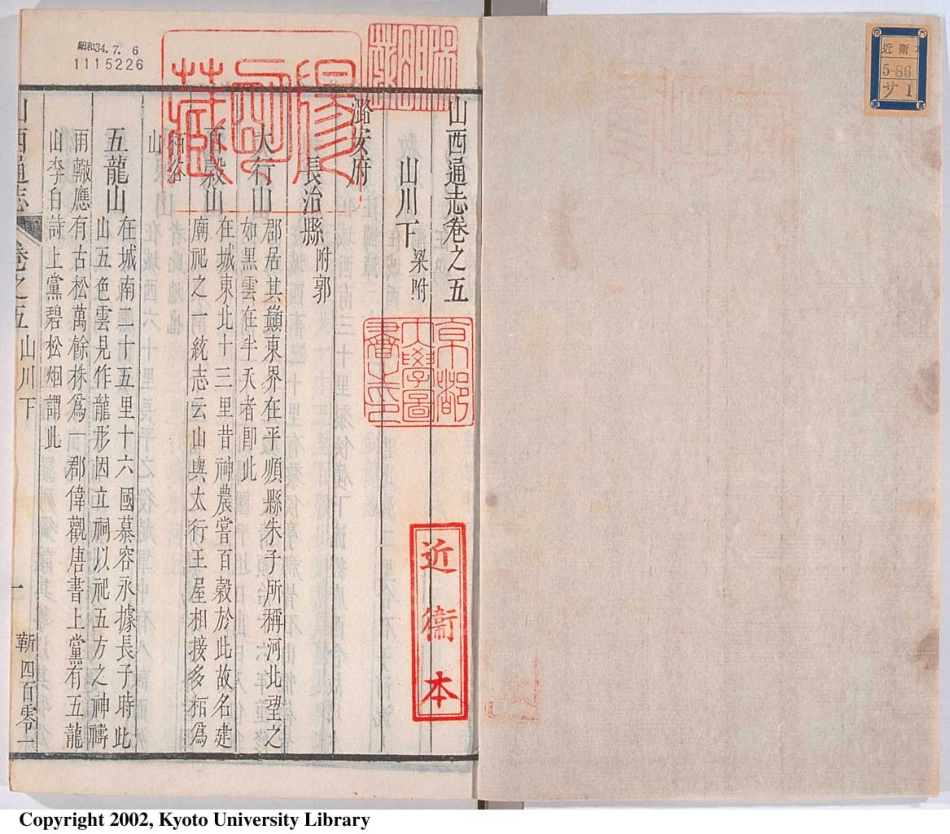 近衛本
5-86
サ1
昭和34.7.6
1115226
陽明藏
山西通志卷之五
山川下 梁附
潞安府
長治縣 附郭
太行山 郡居其巔東界在平順縣朱子所稱河北望之
如黑雲在半天者卽此
百穀山 在城東北十三里昔神農嘗百穀於此故名建
廟祀之一統志云山與太行王屋相接多柘爲
山
五龍山 在城南二十五里十六國慕容永據長子時此
山五色雲見作龍形因立祠以祀五方之神禱
雨輙應有古松萬餘株爲一郡偉觀唐書上黨有五龍
山李白詩上黨碧松烟謂此
山西通志 卷之五 山川下 一 蘄四百零一
京都
大學圖
書之印
近衛本
Copyright 2002, Kyoto University Library